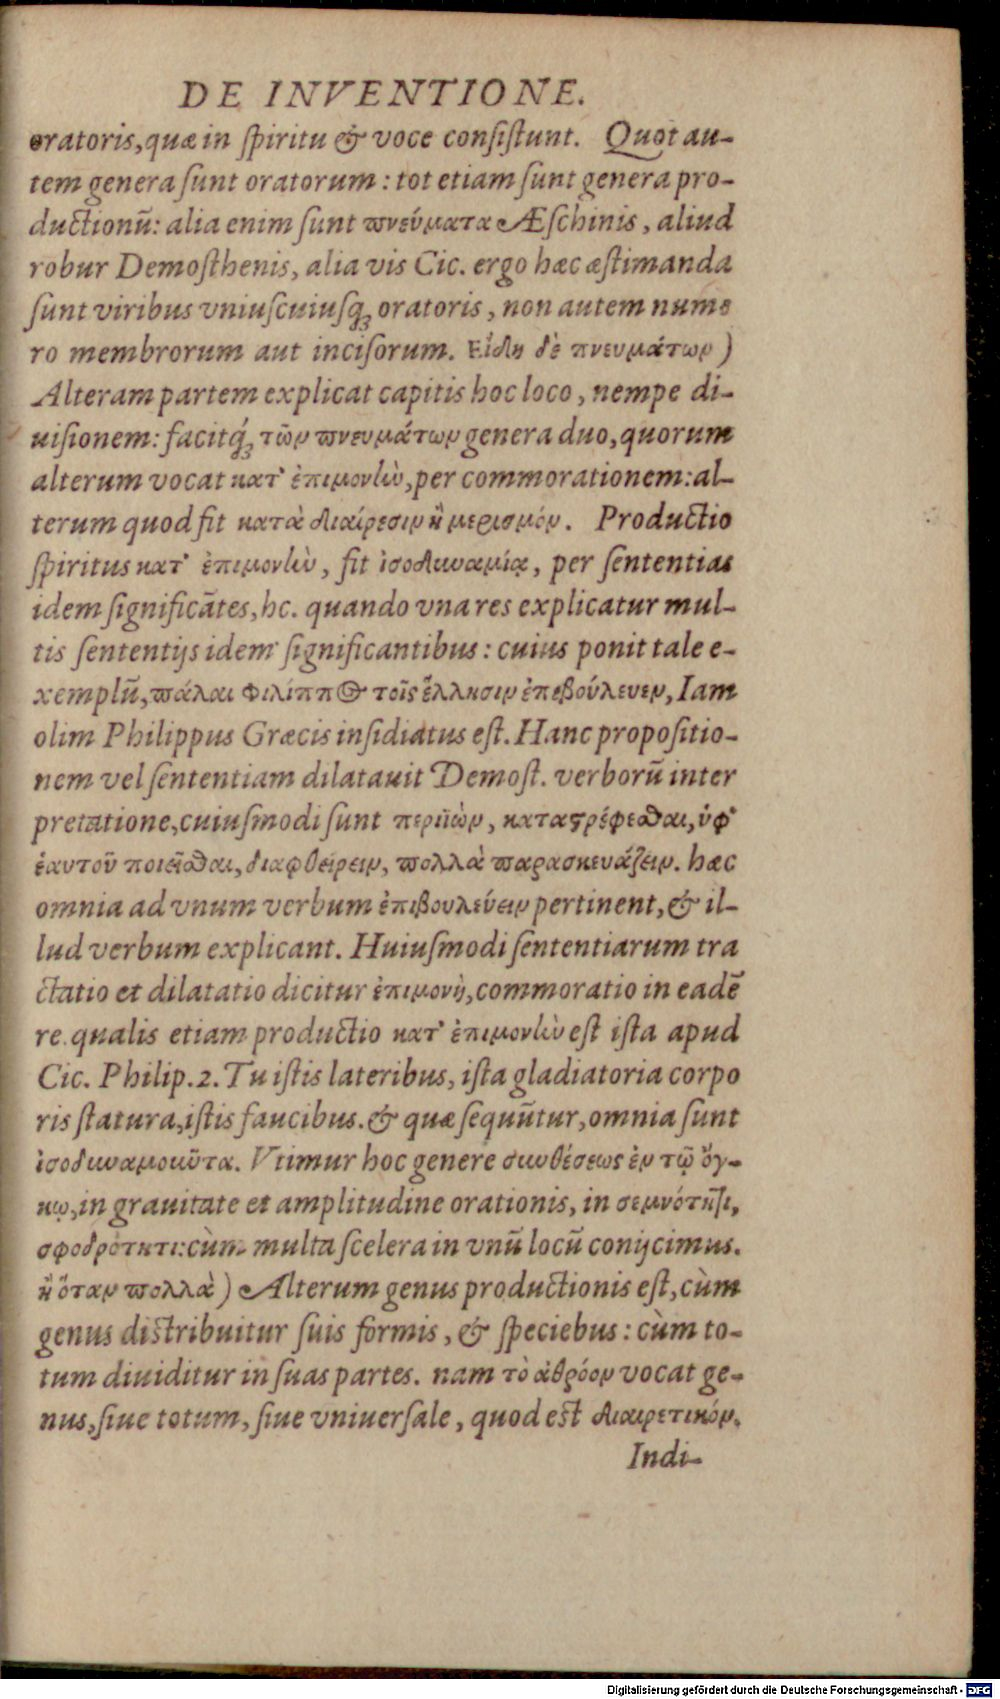 DE INVENTIONE.
oratoris, quæ in ſpiritu & voce conſiſtunt. Quot au-
tem genera ſunt oratorum : tot etiam ſunt genera pro-
ductionũ: alia enim ſunt πνεύματα Æſchinis, aliud
robur Demoſthenis, alia vis Cic. ergo hæc æſtimanda
ſunt viribus vniuſcuiuſq; oratoris, non autem nume
ro membrorum aut inciſorum. Εἴδη δὲ πνευμάτων )
Alteram partem explicat capitis hoc loco, nempe di-
uiſionem: facitq́; τῶν πνευμάτων genera duo, quorum
alterum vocat κατ' ἐπιμονὴν, per commorationem: al-
terum quod fit κατὰ διαίρεσιν ἢ μερισμόν. Productio
ſpiritus κατ' ἐπιμονὴν, fit ἰσοδυναμίᾳ, per ſententias
idem ſignificãtes, hc. quando vna res explicatur mul-
tis ſententijs idem ſignificantibus : cuius ponit tale e-
xemplũ, πάλαι Φιλίππος τοῖς ἕλλησιν ἐπεβούλευεν, Iam
olim Philippus Græcis inſidiatus eſt. Hanc propoſitio-
nem vel ſententiam dilatauit Demoſt. verborũ inter
pretatione, cuiuſmodi ſunt περιϊὼν, καταστρέφεσθαι, ὑφ'
ἑαυτοῦ ποιεῖσθαι, διαφθείρειν, πολλὰ παρασκευάζειν. hæc
omnia ad vnum verbum ἐπιβουλεύειν pertinent, & il-
lud verbum explicant. Huiuſmodi ſententiarum tra
ctatio et dilatatio dicitur ἐπιμονὴ, commoratio in eadẽ
re. qualis etiam productio κατ' ἐπιμονὴν eſt iſta apud
Cic. Philip. 2. Tu iſtis lateribus, iſta gladiatoria corpo
ris ſtatura, iſtis faucibus. & quæ ſequũtur, omnia ſunt
ἰσοδυναμοῦντα. Vtimur hoc genere συνθέσεως ἐν τῷ ὄγ-
κῳ, in grauitate et amplitudine orationis, in σεμνότητι,
σφοδρότητι: cùm multa ſcelera in vnũ locũ conijcimus.
ἢ ὅταν πολλὰ ) Alterum genus productionis eſt, cùm
genus diſtribuitur ſuis formis, & ſpeciebus : cùm to-
tum diuiditur in ſuas partes. nam τὸ ἀθρόον vocat ge-
nus, ſiue totum, ſiue vniuerſale, quod eſt διαιρετικόν.
Indi-
Digitalisierung gefördert durch die Deutsche Forschungsgemeinschaft - DFG